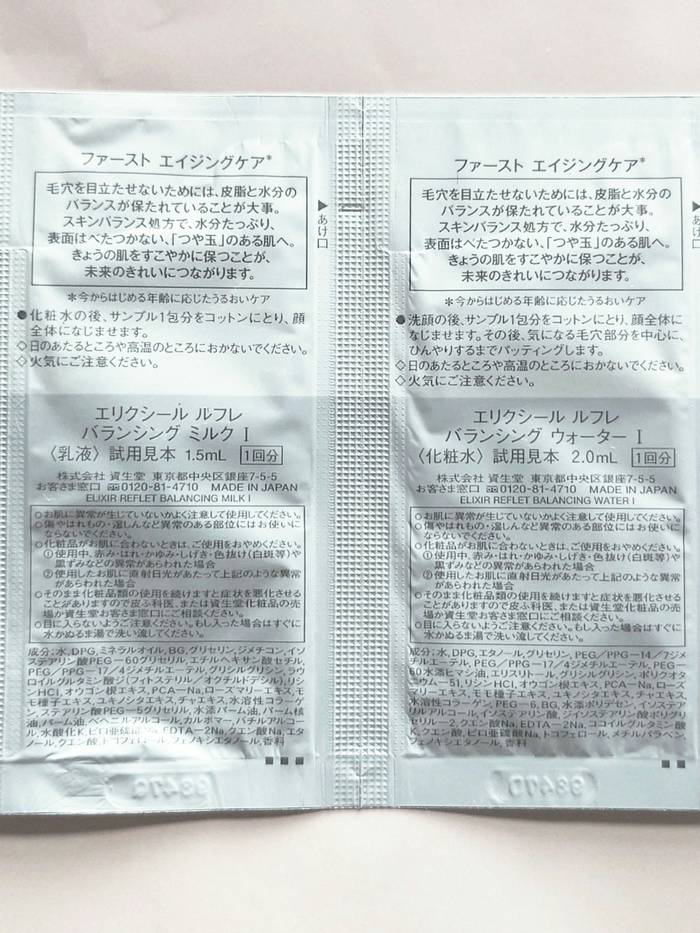 ファースト エイジングケア*
毛穴を目立たせないためには、皮脂と水分の
バランスが保たれていることが大事。
スキンバランス処方で、水分たっぷり、
表面はべたつかない、「つや玉」のある肌へ。
きょうの肌をすこやかに保つことが、
未来のきれいにつながります。
*今からはじめる年齢に応じたうるおいケア
●化粧水の後、サンプル1包分をコットンにとり、顔
全体になじませます。
◇日のあたるところや高温のところにおかないでください。
◇火気にご注意ください。
▶あけ口
エリクシール ルフレ
バランシング ミルク I
〈乳液〉試用見本 1.5mL 1回分
株式会社 資生堂 東京都中央区銀座7-5-5
お客さま窓口 0120-81-4710 MADE IN JAPAN
ELIXIR REFLET BALANCING MILK I
○お肌に異常が生じていないかよく注意して使用してください。
○傷やはれもの・湿しんなど異常のある部位にはお使いに
ならないでください。
○化粧品がお肌に合わないときは、ご使用をおやめください。
①使用中、赤み・はれ・かゆみ・しげき・色抜け(白斑等)や
黒ずみなどの異常があらわれた場合
②使用したお肌に直射日光があたって上記のような異常
があらわれた場合
○そのまま化粧品類の使用を続けますと症状を悪化させる
ことがありますので皮ふ科医、または資生堂化粧品の売
場か資生堂お客さま窓口にご相談ください。
○目に入らないようご注意ください。もし入った場合はすぐに
水かぬるま湯で洗い流してください。
成分:水、DPG、ミネラルオイル、BG、グリセリン、ジメチコン、イソ
ステアリン酸PEG-60グリセリル、エチルヘキサン酸セチル、
PEG/PPG-17/4ジメチルエーテル、グリシルグリシン、ラウ
ロイルグルタミン酸ジ(フィトステリル/オクチルドデシル)、リシ
ンHCl、オウゴン根エキス、PCA-Na、ローズマリーエキス、モ
モ種子エキス、ユキノシタエキス、チャエキス、水溶性コラーゲ
ン、ステアリン酸PEG-5グリセリル、水添パーム油、パーム核
油、パーム油、ベヘニルアルコール、カルボマー、バチルアルコー
ル、水酸化K、ピロ亜硫酸Na、EDTA-2Na、クエン酸Na、エタ
ノール、クエン酸、トコフェロール、フェノキシエタノール、香料
ファースト エイジングケア*
毛穴を目立たせないためには、皮脂と水分の
バランスが保たれていることが大事。
スキンバランス処方で、水分たっぷり、
表面はべたつかない、「つや玉」のある肌へ。
きょうの肌をすこやかに保つことが、
未来のきれいにつながります。
*今からはじめる年齢に応じたうるおいケア
●洗顔の後、サンプル1包分をコットンにとり、顔全体に
なじませます。その後、気になる毛穴部分を中心に、
ひんやりするまでパッティングします。
◇日のあたるところや高温のところにおかないでください。
◇火気にご注意ください。
▶あけ口
エリクシール ルフレ
バランシング ウォーター I
〈化粧水〉試用見本 2.0mL 1回分
株式会社 資生堂 東京都中央区銀座7-5-5
お客さま窓口 0120-81-4710 MADE IN JAPAN
ELIXIR REFLET BALANCING WATER I
○お肌に異常が生じていないかよく注意して使用してください。
○傷やはれもの・湿しんなど異常のある部位にはお使いに
ならないでください。
○化粧品がお肌に合わないときは、ご使用をおやめください。
①使用中、赤み・はれ・かゆみ・しげき・色抜け(白斑等)や
黒ずみなどの異常があらわれた場合
②使用したお肌に直射日光があたって上記のような異常
があらわれた場合
○そのまま化粧品類の使用を続けますと症状を悪化させる
ことがありますので皮ふ科医、または資生堂化粧品の売
場か資生堂お客さま窓口にご相談ください。
○目に入らないようご注意ください。もし入った場合はすぐに
水かぬるま湯で洗い流してください。
成分:水、DPG、エタノール、グリセリン、PEG/PPG-14/7ジメ
チルエーテル、PEG/PPG-17/4ジメチルエーテル、PEG-
60水添ヒマシ油、エリスリトール、グリシルグリシン、ポリクオタ
ニウム-51、リシンHCl、オウゴン根エキス、PCA-Na、ローズ
マリーエキス、モモ種子エキス、ユキノシタエキス、チャエキス、
水溶性コラーゲン、PEG-6、BG、水添ポリデセン、イソステア
リルアルコール、イソステアリン酸、ジイソステアリン酸ポリグリ
セリル-2、クエン酸Na、EDTA-2Na、ココイルグルタミン酸
K、クエン酸、ピロ亜硫酸Na、トコフェロール、メチルパラベン、
フェノキシエタノール、香料